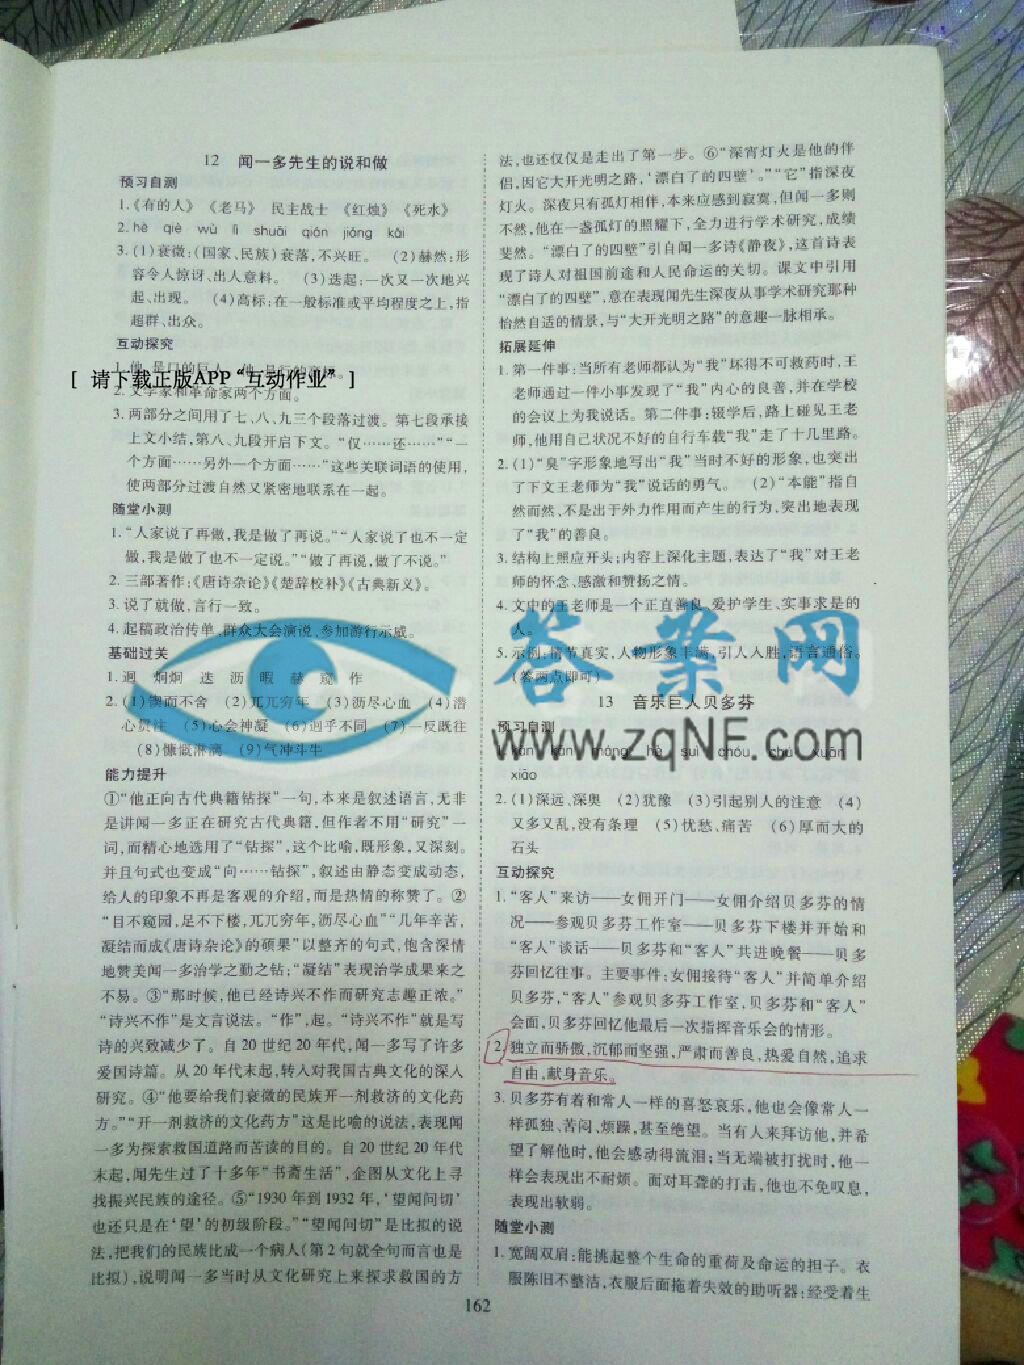 12 闻一多先生的说和做
预习自测
1.《有的人》 《老马》 民主战士 《红烛》 《死水》
2. hè qiè wù lì shuāi qión jióng kǎi
3. (1)衰微:(国家、民族)衰落,不兴旺。 (2)赫然:形
容令人惊讶、出人意料。 (3)迭起:一次又一次地兴
起、出现。 (4)高标:在一般标准或平均程度之上,指
超群、出众。
互动探究
[ 请下载正版APP“互动作业” ]
2. 文学家和革命家两个方面。
3. 两部分之间用了七、八、九三个段落过渡。第七段承接
上文小结,第八、九段开启下文。“仅……还……”“一
个方面……另外一个方面……”这些关联词语的使用,
使两部分过渡自然又紧密地联系在一起。
随堂小测
1.“人家说了再做,我是做了再说。”“人家说了也不一定
做,我是做了也不一定说。”“做了再说,做了不说。”
2. 三部著作:《唐诗杂论》《楚辞校补》《古典新义》。
3. 说了就做,言行一致。
4. 起稿政治传单,群众大会演说,参加游行示威。
基础过关
1. 迥 炯炯 迭 沥 暇 赫 窥 作
2. (1)锲而不舍 (2)兀兀穷年 (3)沥尽心血 (4)潜
心贯注 (5)心会神凝 (6)迥乎不同 (7)一反既往
(8)慷慨淋漓 (9)气冲斗牛
能力提升
①“他正向古代典籍钻探”一句,本来是叙述语言,无非
是讲闻一多正在研究古代典籍,但作者不用“研究”一
词,而精心地选用了“钻探”,这个比喻,既形象,又深刻。
并且句式也变成“向……钻探”,叙述由静态变成动态,
给人的印象不再是客观的介绍,而是热情的称赞了。②
“目不窥园,足不下楼,兀兀穷年,沥尽心血”“几年辛苦,
凝结而成《唐诗杂论》的硕果”以整齐的句式,饱含深情
地赞美闻一多治学之勤之钻;“凝结”表现治学成果来之
不易。③“那时候,他已经诗兴不作而研究志趣正浓。”
“诗兴不作”是文言说法。“作”,起。“诗兴不作”就是写
诗的兴致减少了。自20世纪20年代,闻一多写了许多
爱国诗篇。从20年代末起,转入对我国古典文化的深入
研究。④“他要给我们衰微的民族开一剂救济的文化药
方。”“开一剂救济的文化药方”这是比喻的说法,表现闻
一多为探索救国道路而苦读的目的。自20世纪20年代
末起,闻先生过了十多年“书斋生活”,企图从文化上寻
找振兴民族的途径。⑤“1930年到1932年,‘望闻问切’
也还只是在‘望’的初级阶段。”“望闻问切”是比拟的说
法,把我们的民族比成一个病人(第2句就全句而言也是
比拟),说明闻一多当时从文化研究上来探求救国的方
法,也还仅仅是走出了第一步。⑥“深宵灯火是他的伴
侣,因它大开光明之路,‘漂白了的四壁’。”“它”指深夜
灯火。深夜只有孤灯相伴,本来应感到寂寞,但闻一多则
不然,他在一盏孤灯的照耀下,全力进行学术研究,成绩
斐然。“漂白了的四壁”引自闻一多诗《静夜》,这首诗表
现了诗人对祖国前途和人民命运的关切。课文中引用
“漂白了的四壁”,意在表现闻先生深夜从事学术研究那种
怡然自适的情景,与“大开光明之路”的意趣一脉相承。
拓展延伸
1. 第一件事:当所有老师都认为“我”坏得不可救药时,王
老师通过一件小事发现了“我”内心的良善,并在学校
的会议上为我说话。第二件事:辍学后,路上碰见王老
师,他用自己状况不好的自行车载“我”走了十几里路。
2. (1)“臭”字形象地写出“我”当时不好的形象,也突出
了下文王老师为“我”说话的勇气。 (2)“本能”指自
然而然,不是出于外力作用而产生的行为,突出地表现
了“我”的善良。
3. 结构上照应开头;内容上深化主题,表达了“我”对王老
师的怀念、感激和赞扬之情。
4. 文中的王老师是一个正直善良、爱护学生、实事求是的
人。
5. 示例:情节真实,人物形象丰满,引人入胜,语言通俗。
(答两点即可)
答案网
www.zqNF.com
13 音乐巨人贝多芬
预习自测
xiāo
2. (1)深远、深奥 (2)犹豫 (3)引起别人的注意 (4)
又多又乱,没有条理 (5)忧愁、痛苦 (6)厚而大的
石头
互动探究
1.“客人”来访——女佣开门——女佣介绍贝多芬的情
况——参观贝多芬工作室——贝多芬下楼并开始和
“客人”谈话——贝多芬和“客人”共进晚餐——贝多
芬回忆往事。主要事件:女佣接待“客人”并简单介绍
贝多芬,“客人”参观贝多芬工作室,贝多芬和“客人”
会面,贝多芬回忆他最后一次指挥音乐会的情形。
2. 独立而骄傲,沉郁而坚强,严肃而善良,热爱自然,追求
自由,献身音乐。
3. 贝多芬有着和常人一样的喜怒哀乐,他也会像常人一
样孤独、苦闷、烦躁,甚至绝望。当有人来拜访他,并希
望了解他时,他会感动得流泪;当无端被打扰时,他一
样会表现出不耐烦。面对耳聋的打击,他也不免叹息,
表现出软弱。
随堂小测
1. 宽阔双肩:能挑起整个生命的重荷及命运的担子。衣
服陈旧不整洁,衣服后面拖着失效的助听器:经受着生
162